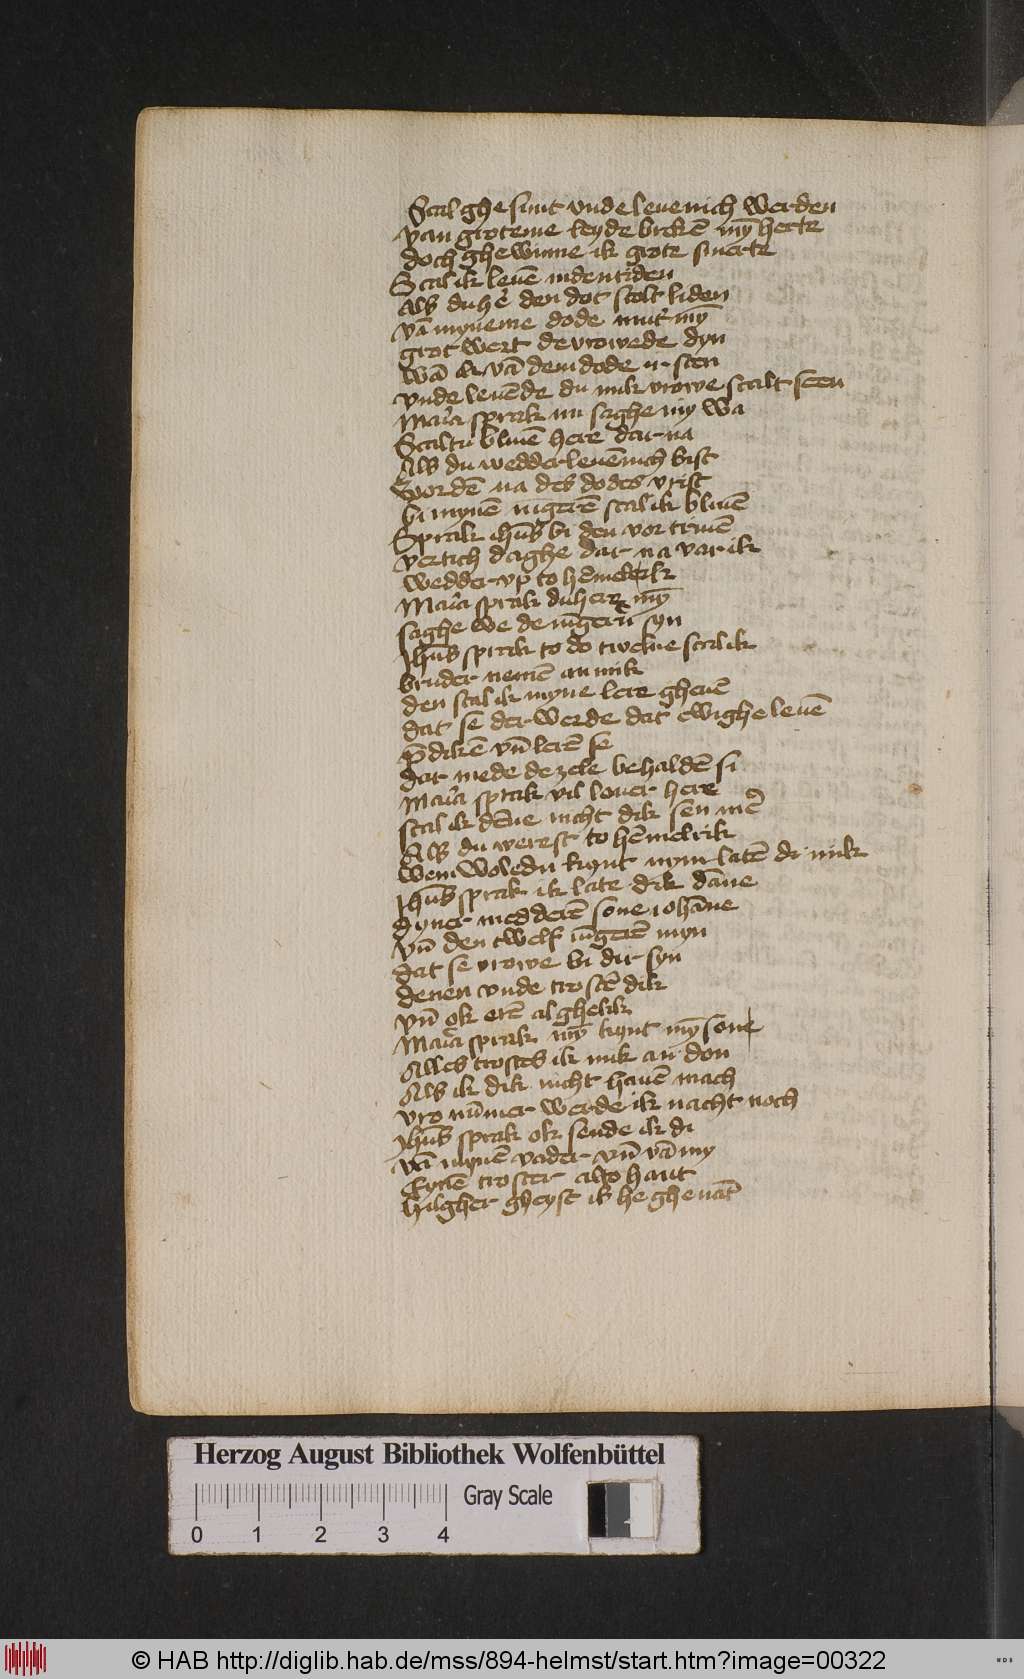 Scal ghe sunt vnde leuenich werden
van groteme leyde brekē mȳ herte
doch ghewinne ik grote smerte
Scal ik leuē in den tiden
Als du hē den dot scolt liden
vā myneme dode mut mȳ
grot wert de vrowede dyn
wā ik vā dem dode ir sten
vnde leuēde du mik vrowe scalt seen
Maria sprak nu saghe my wa
Scaltu bliuē here dar na
Als du wedder leuēnich bist
Wordē na des dodes vrist
bi mynē iūgerē scal ik bliuē
Sprak ihūs bi den vor triuē
vertich daghe dar na var ik
wedder vp to hēmelrik
Maria sprak du here mȳ
saghe we de iūgerē syn
Ihūs sprak to do twelue scal ik
bruder nemē an mik
den scal ik myne lere gheuē
dat se der werde dat ewighe leuē
p̄dikē vn̄ lerē se
dar mede de zele behaldē si
Maria sprak vil leuer here
scal ik dēne nicht dik sen mē
Als du werest to hēmelrik
wem woledu kynt myn latē di mik
Ihūs sprak ik late dik dāne
dyner medderē sone iohāne
vn̄ den twelf iūgerē myn
dat se vrowe bi dir syn
denen vnde trostē dik
vn̄ ok erē al ghelik
Maria sprak mȳ kynt mȳ sone
Alles trostes ik mik an don
Als ik dik nicht hauē mach
vro nūmer werde ik nacht noch
Ihūs sprak ok sende ik di
vā mynē vader vn̄ vā my
Eynē troster alto hant
hilgher gheyst is he ghenāt
Herzog August Bibliothek Wolfenbüttel
Gray Scale
0 1 2 3 4
© HAB http://diglib.hab.de/mss/894-helmst/start.htm?image=00322